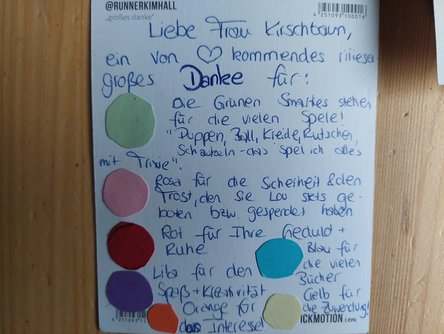 @RUNNERKIMHALL
„großes danke"
4 251093 100016
Liebe Frau Kirschbaum,
ein von ♡ kommendes riesen
großes Danke für:
Die Grünen Smarties stehen
für die vielen Spiele!
"Puppen, Ball, Kreide, Rutschen,
Schaukeln - das spiel ich alles
mit Trixie".
Rosa für die Scheiheit & den
Trost, den Sie Lou stets ge-
boten bzw. gespendet haben
Rot für Ihre Geduld +
Ruhe
Blau für
die vielen
Bücher
Lila für den
Spaß + Kreativität
Gelb für
die Zuwendung!
Orange für
das Interesse!
ICKMOTION.com